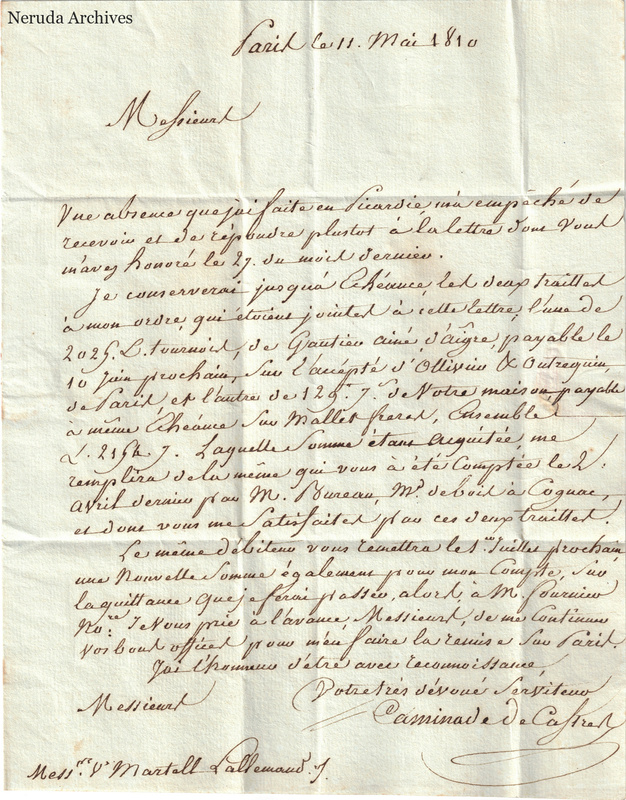 Neruda Archives
Paris le 11. Mai 1810
Messieurs
Une absence que j'ai faite en Picardie m'a empêché de
recevoir et de répondre plustot à la lettre dont vous
m'avez honoré le 27. du mois dernier.
Je conserverai jusqu'à Echéance, les deux traittes
à mon ordre, qui étoient jointes à cette lettre, l'une de
2025. L. tournois, de Gautier ainé d'aigre, payable le
10 Juin prochain, sur l'accepté d'Ollivier & Outrequin,
de Paris et l'autre de 129.# 7.s de Votre maison, payable
à même Echéance sur Mallet freres, Ensemble
L. 2154. 7. Laquelle Somme étant acquitée, me
remplira de la même qui vous à été Comptée le 2.
avril dernier par M. Bureau, Md. de bois à Cognac,
et dont vous me Satisfaites par ces deux traittes.
Le même débiteur vous remettra le 1er Juillet prochain
une Nouvelle Somme également pour mon Compte, sur
la quittance que je ferai passer, alors, à M. fournier
Nore. Je vous prie à l'avance, Messieurs, de me Continuer
vos bons offices pour m'en faire la remise sur Paris.
J'ai l'honneur d'être avec reconnoissance,
Messieurs
Votre très dévoué Serviteur
Caminade de Castres
Messrs. Ve Martell Lallemand